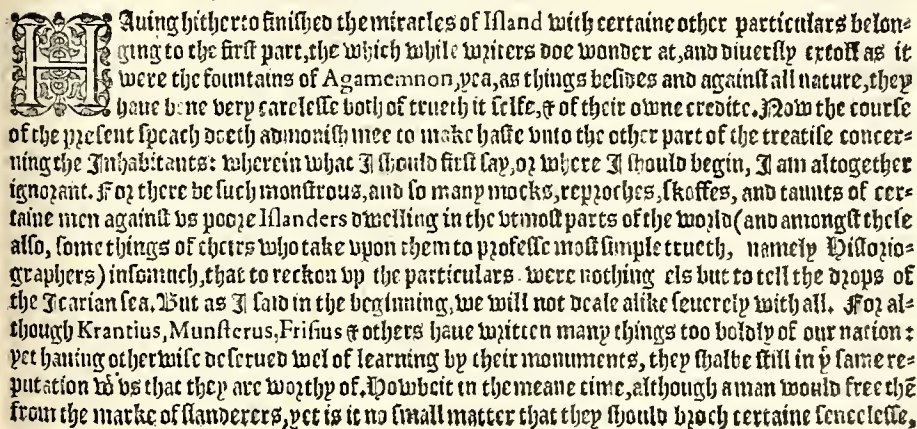 HAuing hitherto finiſhed the miracles of Iſland with certaine other particulars belon⸗
ging to the firſt part, the which while writers doe wonder at, and diuerſly extoll as it
were the fountains of Agamemnon, yea, as things beſides and againſt all nature, they
haue bene very careleſſe both of trueth it ſelfe, & of their owne credite. Now the courſe
of the preſent ſpeach doeth admoniſh mee to make haſte vnto the other part of the treatiſe concer⸗
ning the Inhabitants: wherein what I ſhould firſt ſay, or where I ſhould begin, I am altogether
ignorant. For there be ſuch monſtrous, and ſo many mocks, reproches, ſkoffes, and taunts of cer⸗
taine men againſt vs poore Iſlanders dwelling in the vtmoſt parts of the world (and amongſt theſe
alſo, ſome things of theirs who take vpon them to profeſſe moſt ſimple trueth, namely Hiſtorio⸗
graphers) inſomuch, that to reckon vp the particulars were nothing els but to tell the drops of
the Icarian ſea. But as I ſaid in the beginning, we will not deale alike ſeuerely with all. For al⸗
though Krantius, Munſterus, Friſius & others haue written many things too boldly of our nation:
yet hauing otherwiſe deſerued wel of learning by their monuments, they ſhalbe ſtill in yͤ ſame re⸗
putation wͭ vs that they are worthy of. Howbeit in the meane time, although a man would free thē
from the marke of ſlanderers, yet is it no ſmall matter that they ſhould broch certaine ſenceleſſe,